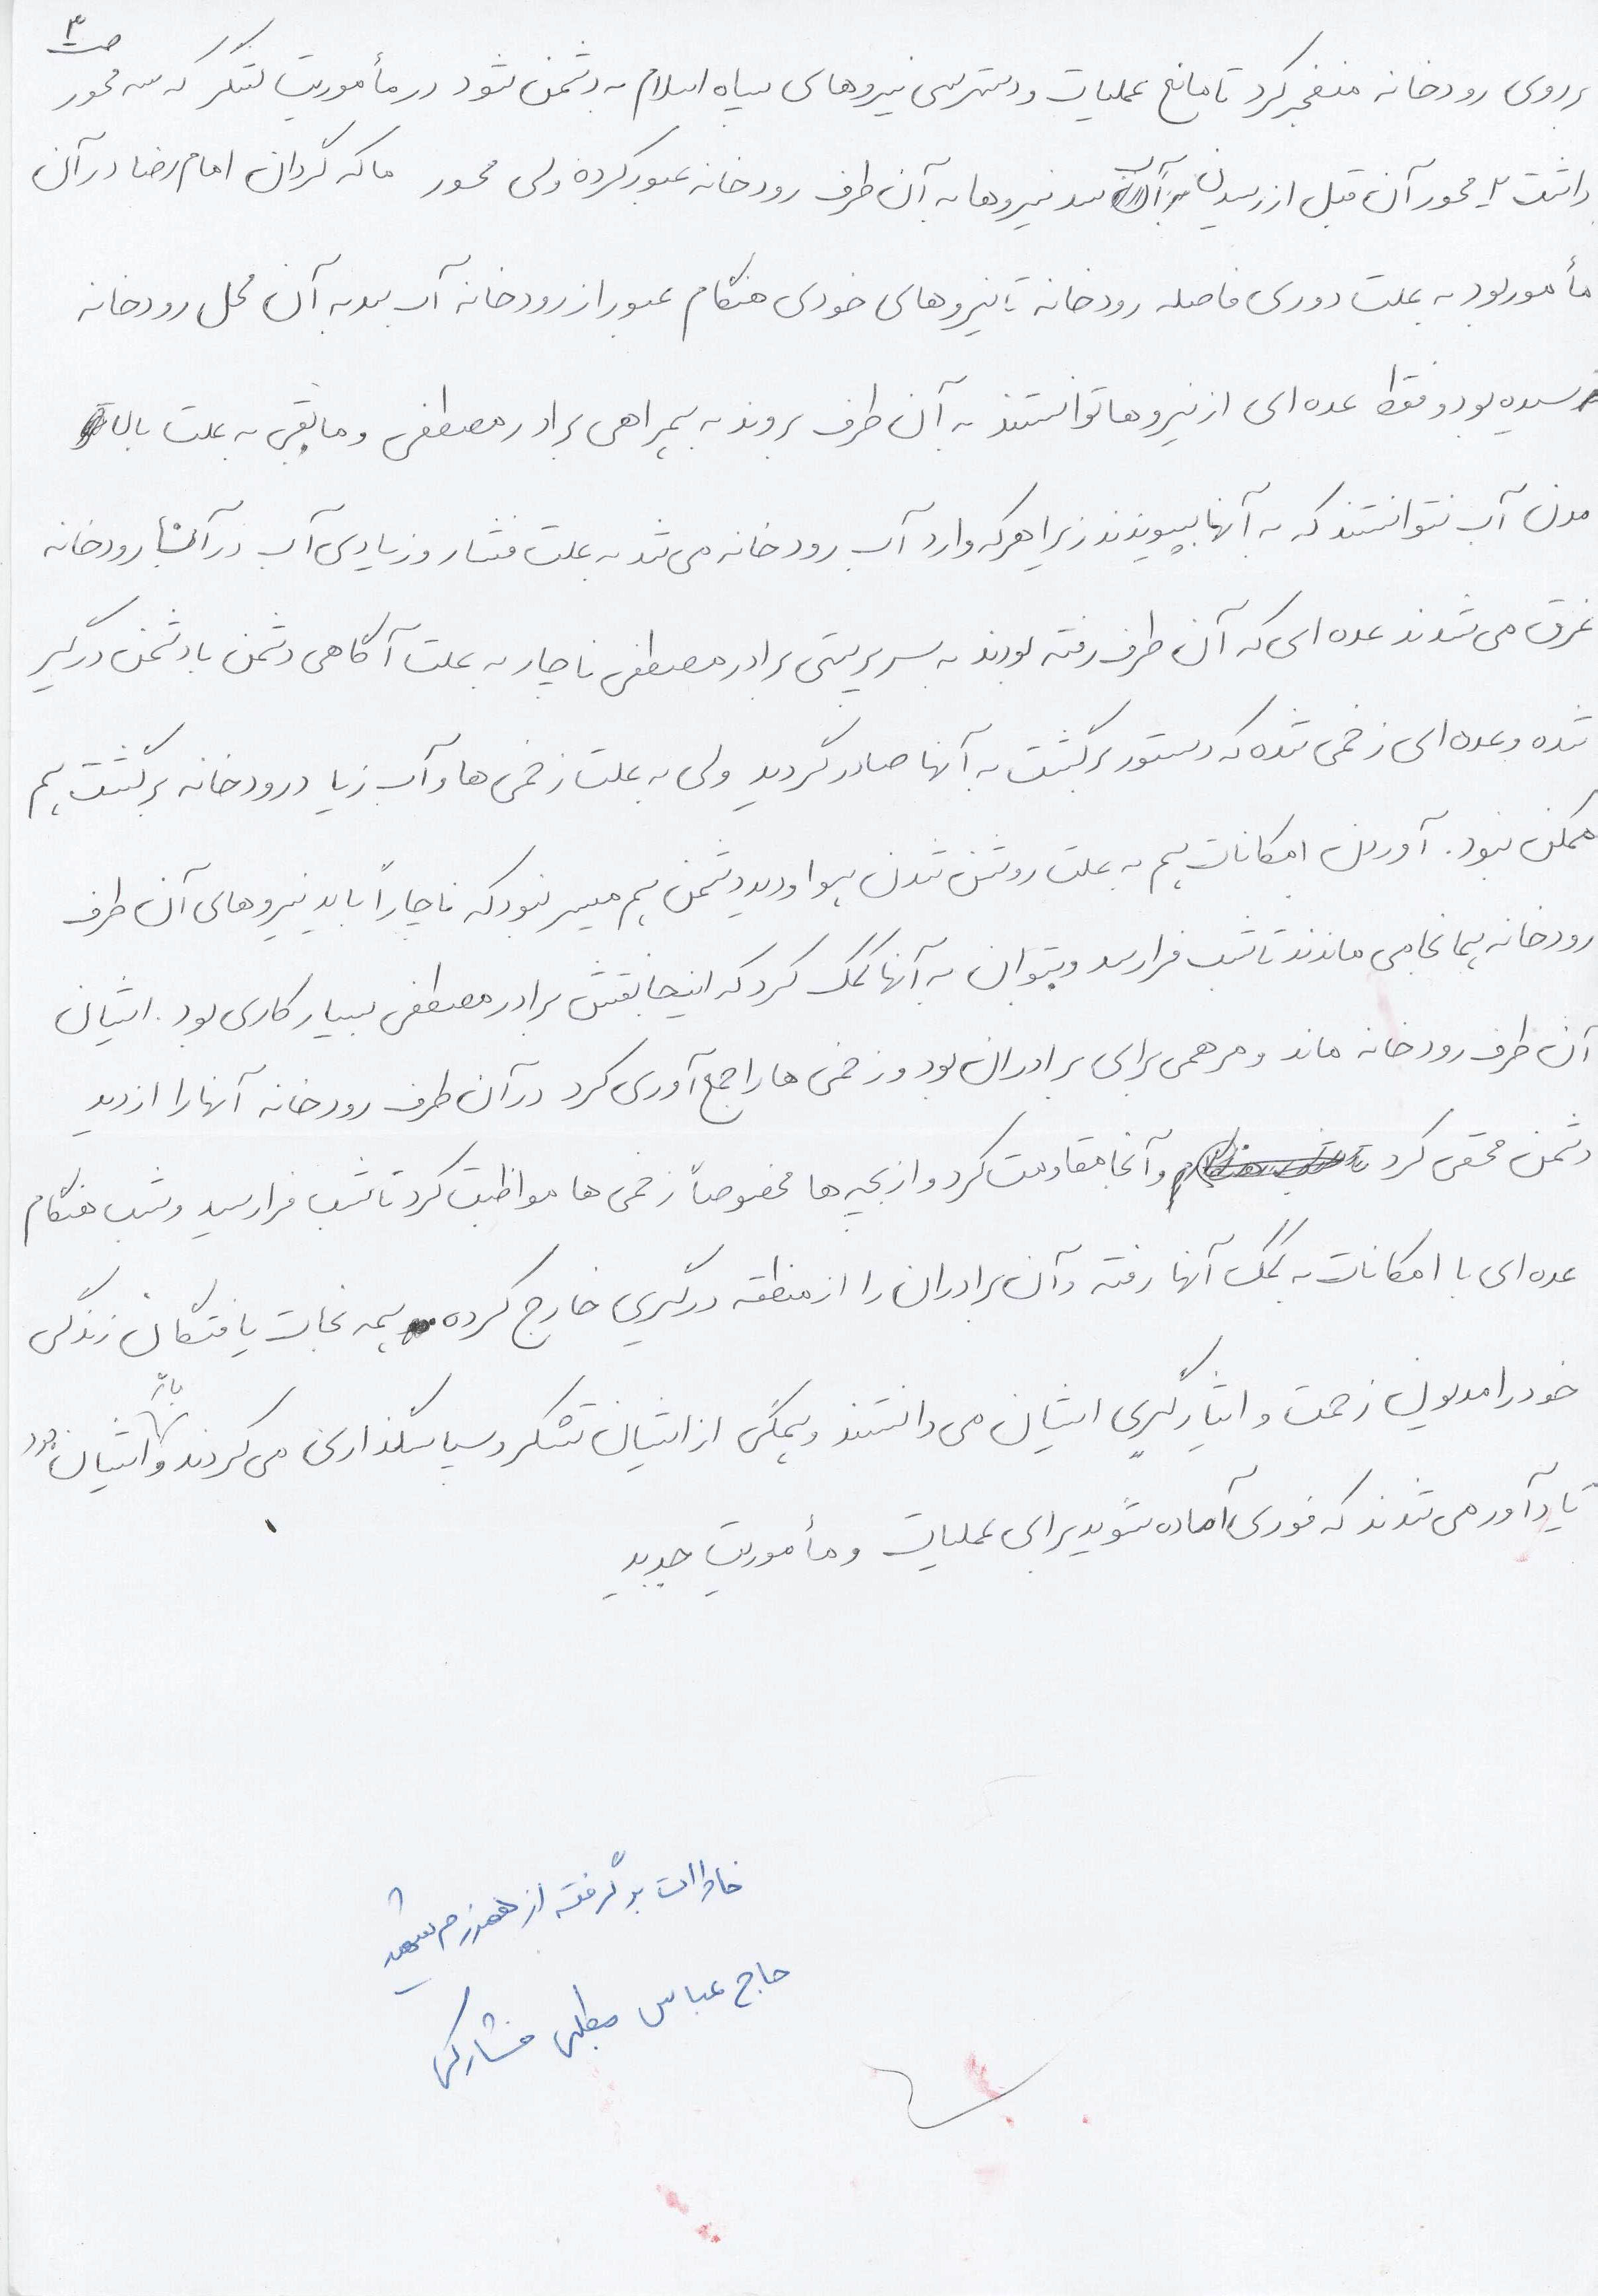 ص ۳
بر روی رودخانه منفجر کرد تا مانع عملیات و دسترسی نیروهای سپاه اسلام به دشمن شود در مأموریت لشکر که سه محور
داشت ۲ محور آن قبل از رسیدن آب سد نیروها به آن طرف رودخانه عبور کرده ولی محور ما که گردان امام رضا در آن
مأمور بود به علت دوری فاصله رودخانه تا نیروهای خودی هنگام عبور از رودخانه آب سد به آن محل رودخانه
رسیده بود و فقط عده ای از نیروها توانستند به آن طرف بروند به همراهی برادر مصطفی و مابقی به علت بالا
مدن آب نتوانستند که به آنها بپیوندند زیرا هر که وارد آب رودخانه می شد به علت فشار و زیادی آب در آنجا رودخانه
غرق می شدند عده ای که آن طرف رفته بودند به سرپرستی برادر مصطفی ناچار به علت آگاهی دشمن با دشمن درگیر
شده و عده ای زخمی شده که دستور برگشت به آنها صادر گردید ولی به علت زخمی ها و آب زیا درودخانه برگشت هم
ممکن نبود. آوردن امکانات هم به علت روشن شدن هوا و دید دشمن هم میسر نبود که ناچاراً باید نیروهای آن طرف
رودخانه همانجا می ماندند تا شب فرا رسد و بتوان به آنها کمک کرد که اینجا نقش برادر مصطفی بسیار کاری بود. ایشان
آن طرف رودخانه ماند و مرهمی برای برادران بود و زخمی ها را جمع آوری کرد در آن طرف رودخانه آنها را از دید
دشمن مخفی کرد و آنجا مقاومت کرد و از بچه ها مخصوصاً زخمی ها مواظبت کرد تا شب فرا رسید و شب هنگام
عده ای با امکانات به کمک آنها رفته و آن برادران را از منطقه درگیری خارج کرده همه نجات یافتگان زندگی
خود را مدیون زحمت و ایثارگری ایشان می دانستند و همگی از ایشان تشکر و سپاسگذاری می کردند و ایشان باز
یادآور می شدند که فوری آماده شوید برای عملیات و مأموریت جدید
خاطرات برگرفته از همرزم شهید
حاج عباس مطلبی فشارکی